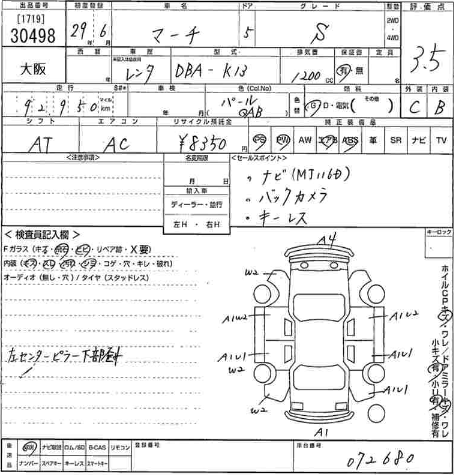 出品番号 初度登録 車名 ドア グレード 駆動 評価点
[1719]
30498 29年6月 マーチ 5 S 2WD 4WD 3.5
車歴 型式 排気量 保証書 定員
大阪 レンタ DBA-K13 1200cc 有・無
走行 車検 色(Col.No) 燃料 外装 内装
92,950 マイル km パール QAB 色替 G・D・電気(その他) C B
シフト エアコン リサイクル預託金 純正装備品
AT AC ¥8350 PS PW AW エアB ABS 革 SR ナビ TV
<注意事項> 名変期限 <セールスポイント>
月 日
輸入車
ディーラー・並行
左H・右H
ナビ(MJ116D)
バックカメラ
キーレス
<検査員記入欄>
Fガラス(キズ・ヒビ・リペア跡・X要)
内装(キズ・スレ・コゲ・穴・キレ・破れ)
オーディオ(無し・穴)/タイヤ(スタッドレス)
左センターピラー下部
キーロック
ホイルCPキズ・ワレ/ドアミラーキズ・ワレ
小キズ有/小U有・補修有
A4
W2
A1W2 A1W2
A1U1 A1U1
W2
W2 A1U1
A1
後送 ナビ取説 ロム/SD B-CAS リモコン
ナンバー スペアキー キーレス スマートキー
登録番号 車台番号
072680